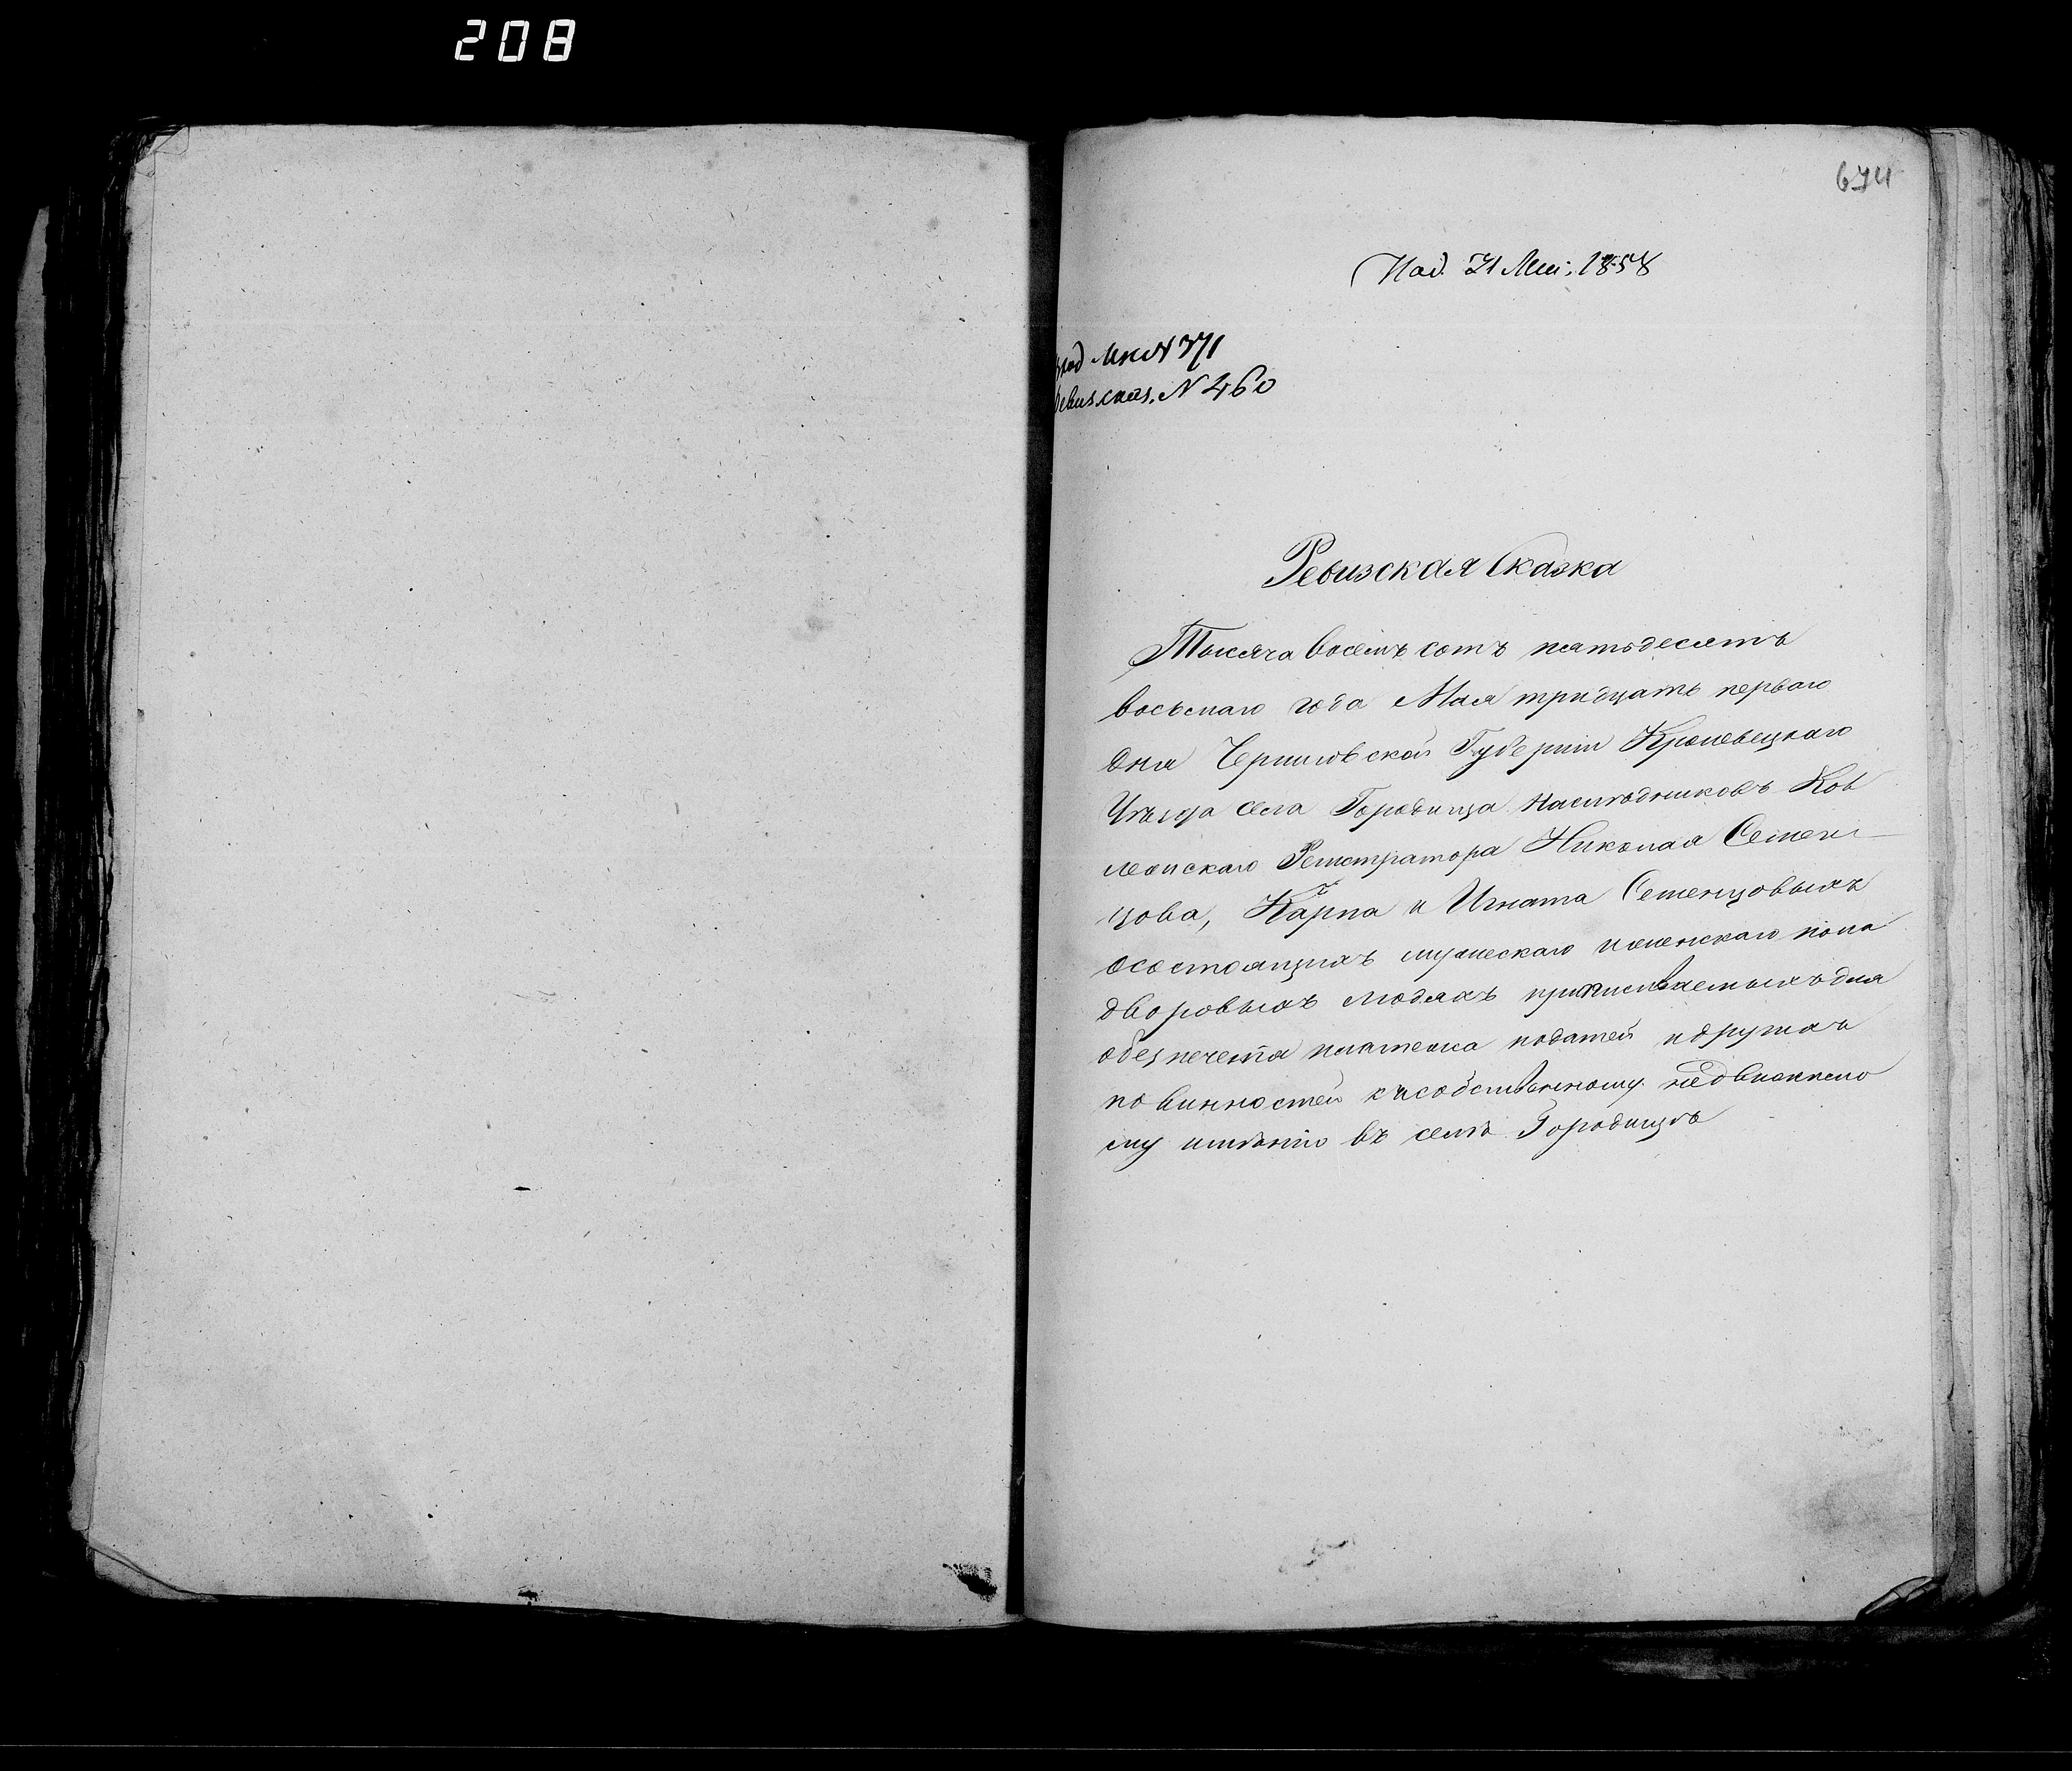 208
674
Под. 31 Мая 1858
вход № 371
Ревиз. сказ. № 460
Ревизская Сказка
Тысяча восемъ сотъ пятьдесятъ
восьмаго года Мая тридцать перваго
дня Черниговской Губерніи Кролевецкаго
Уѣзда села Городища наслѣдниковъ Кол
лежскаго Регистратора Николая Семен-
цова, Карпа и Игната Семенцовыхъ
осостоящихъ мужескаго и женскаго пола
дворовыхъ людяхъ приписываемыхъ для
обезпеченія платежа податей и другихъ
повинностей къ собственному недвижимо
му имѣнію въ селѣ Городищѣ